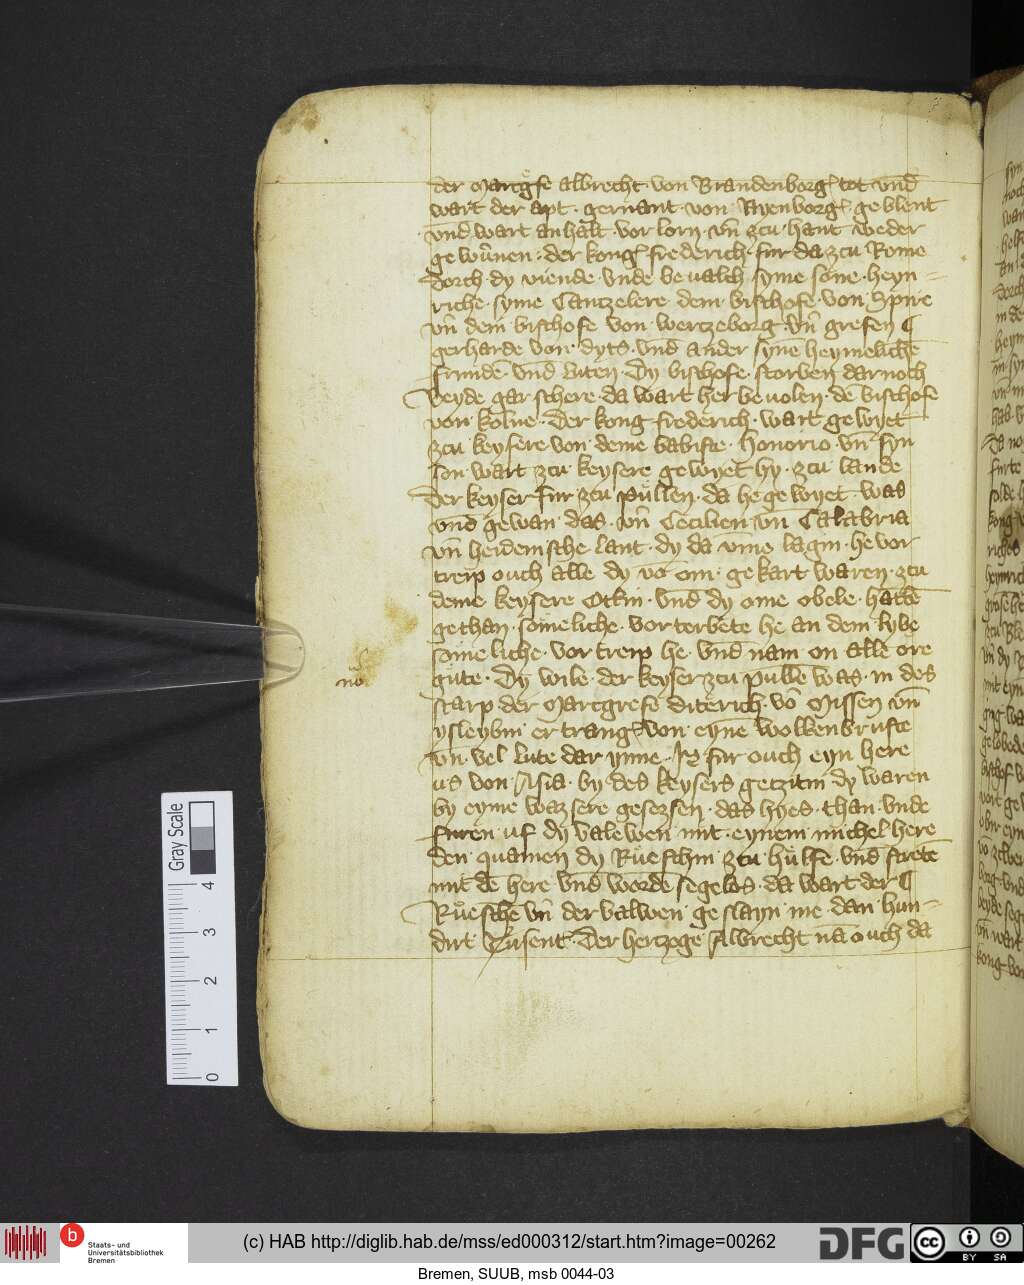 der Marcgͤfe albrecht von Brandenborg tot vnd̄
wart der apt · gernant von Nyenborg · geblent
vnd wart anhalt vor lorn · vn̄ zcu hant weder
gewūnen · der kong frederich fur da zcu Rome
dorch dy viende vnde beualch syme sone · heyn-
riche · syme Cantzelere dem bischofe · von Spire
vn̄ dem bischofe von wertzeborg · vn̄ grefen
gerharde von dyts · vnd ander synē heymelichē
frundē vnd luten · Dy bischofe · storben darnoch
beyde gar schere · da wart her beuolen · dē bischofe
von kolne · Der kong frederich · wart gewyet
zcu keysere von deme babiste · honorio vn̄ syn
son wart zcu keysere gewyet hy · zcu lande
Der keyser fur zcu pullen · da he gewyet · was
vnd gewan das · vn̄ Cecilien vn̄ Calabria
vn̄ heidenische lant · dy da vmme lagin · he vor
treip ouch alle dy vō om · gekart waren · zcu
deme keysere Ottin · vnd dy ome obele · hattē
gethan · someliche · vorterbete he an dem lybe
someliche · vor treip he · vnd nam on alle ore
gute · Dy wile · der keyser zcu pullē was · in des
starp der Marcgrefe diterich · vō Missen vn̄
ysleybin er trang von eynē wolkenbruste
vn̄ vel lute dar ynne · Iz fur ouch eyn here
us von Asia · by des keysers getzitin dy waren
by eyme wazsere gesezsen · das hyes · than · vnde
furen uf dy valewen mit · eynem michel here
den quamen dy Ruͤschin zcu hulfe · vnd stretē
mit dē here vnd worde segelos · da wart der
Ruͤsche vn̄ der valwen geslayn me · dan hun-
dirt tusent · Der hertzoge Albrecht nā ouch da
no
Gray Scale
4
3
2
1
0
b
Staats- und
Universitätsbibliothek
Bremen
(c) HAB http://diglib.hab.de/mss/ed000312/start.htm?image=00262
DFG
cc
BY SA
Bremen, SUUB, msb 0044-03